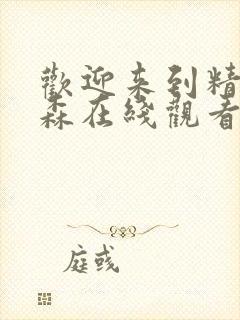 歡迎来到精
森在綫觀看
庭彧